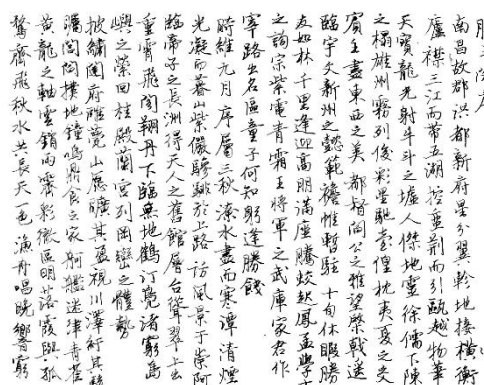 滕王閣序
南昌故郡洪都新府星分翼軫地接橫衡
廬襟三江而帶五湖控蠻荆而引甌越物華
天寶龍光射牛斗之墟人傑地靈徐儒下陳
之榻雄州霧列俊彩星馳臺隍枕夷夏之交
賓主盡東西之美都督閻公之雅望棨戟遙
臨宇文新州之懿範襜帷暫駐十旬休暇勝
友如林千里逢迎高朋滿座騰蛟起鳳孟學士
之詞宗紫電青霜王將軍之武庫家君作
宰路出名區童子何知躬逢勝餞
時維九月序屬三秋潦水盡而寒潭清煙
光凝而暮山紫儼驂騑於上路訪風景于崇阿
臨帝子之長洲得天人之舊館層台聳翠上出
重霄飛閣翔丹下臨無地鶴汀鳧渚窮島
嶼之縈回桂殿蘭宮列岡巒之體勢
披繡闥府雕甍山原曠其盈視川澤紆其駭
矚閭閻撲地鐘鳴鼎食之家舸艦迷津青雀
黃龍之軸雲銷雨霽彩徹區明落霞與孤
鶩齊飛秋水共長天一色漁舟唱晚響窮